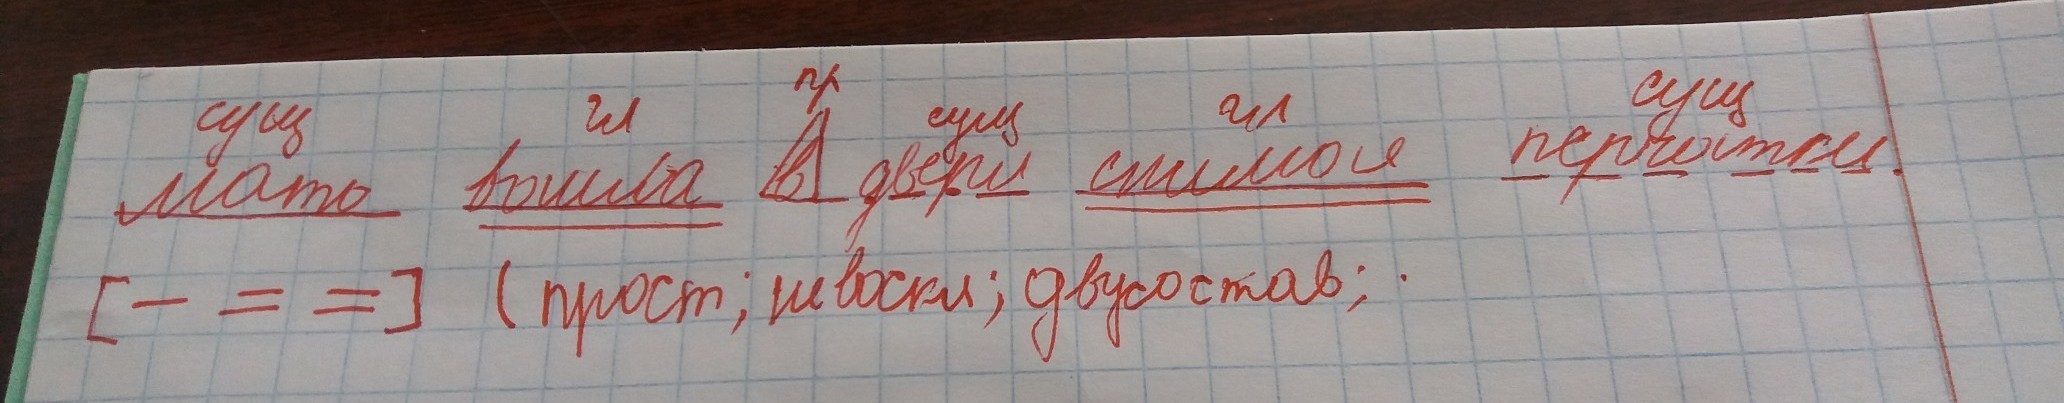 сущ гл пр сущ гл сущ
мать вошла в двери снимая перчатки.
[– = =] (прост; невоскл; двусостав; .